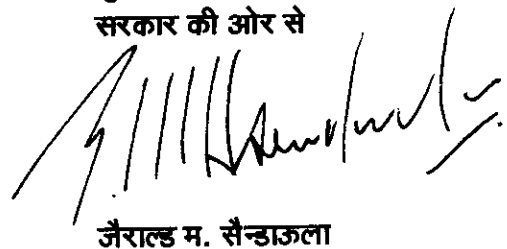 सरकार की ओर से
जैराल्ड म. सैन्डाऊला